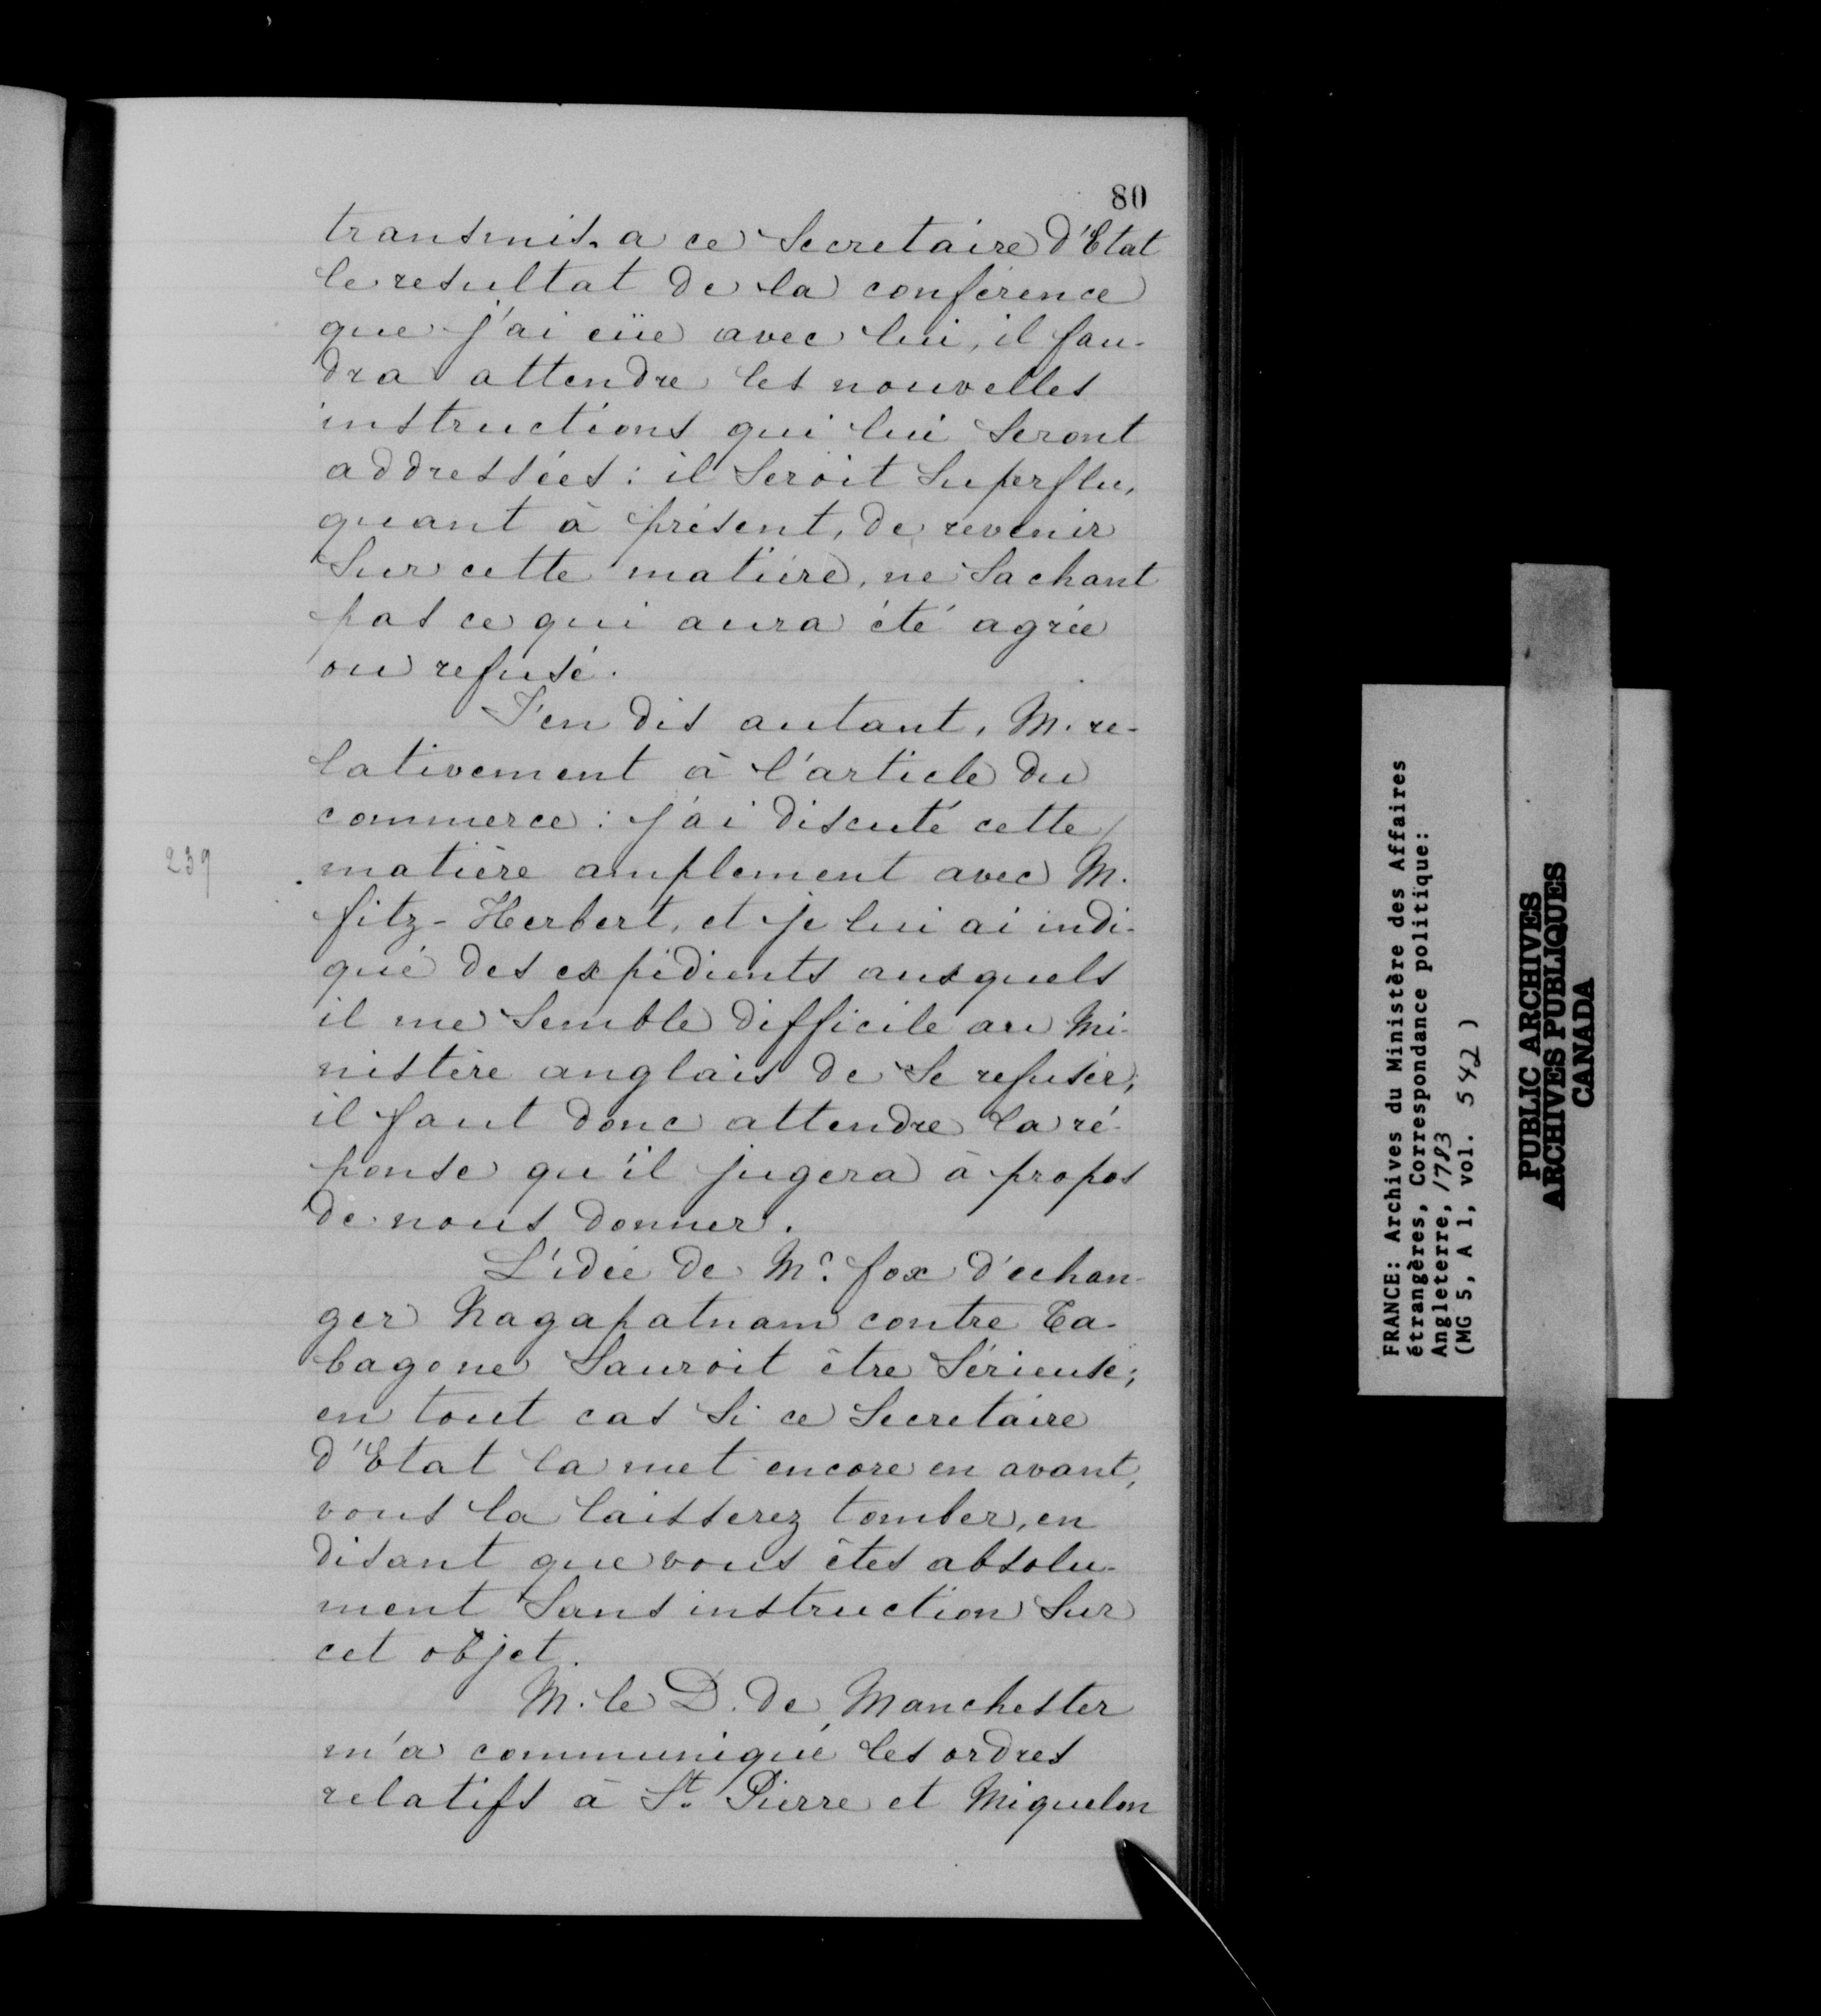 80
transmis a ce Secretaire d'Etat
le resultat de la conférence
que j'ai eüe avec lui, il fau-
dra attendre les nouvelles
instructions qui lui Seront
addressées : il Seroit Superflu,
quant à présent, de revenir
Sur cette matière, ne Sachant
pas ce qui aura été agrée
ou refusé.
J'en dis autant, M. re-
lativement à l'article du
commerce : j'ai discuté cette
239
matière amplement avec M.
fitz-Herbert, et je lui ai indi-
qué des expédients auxquels
il me Semble difficile au Mi-
nistère anglais de Se refuser;
il faut donc attendre la ré-
ponse qu'il jugera à propos
de nous donner.
L'idée de Mr. fox d'echan-
ger Nagapatnam contre Ta-
bago ne Sauroit être Sérieuse;
en tout cas Si ce Secretaire
d'Etat la met encore en avant,
vous la laisserez tomber, en
disant que vous êtes absolu-
ment Sans instruction Sur
cet objet.
M. le D. de Manchester
m'a communiqué les ordres
relatifs à St. Pierre et Miquelon
FRANCE: Archives du Ministère des Affaires
étrangères, Correspondance politique:
Angleterre, 1783
(MG 5, A 1, vol. 542 )
PUBLIC ARCHIVES
ARCHIVES PUBLIQUES
CANADA